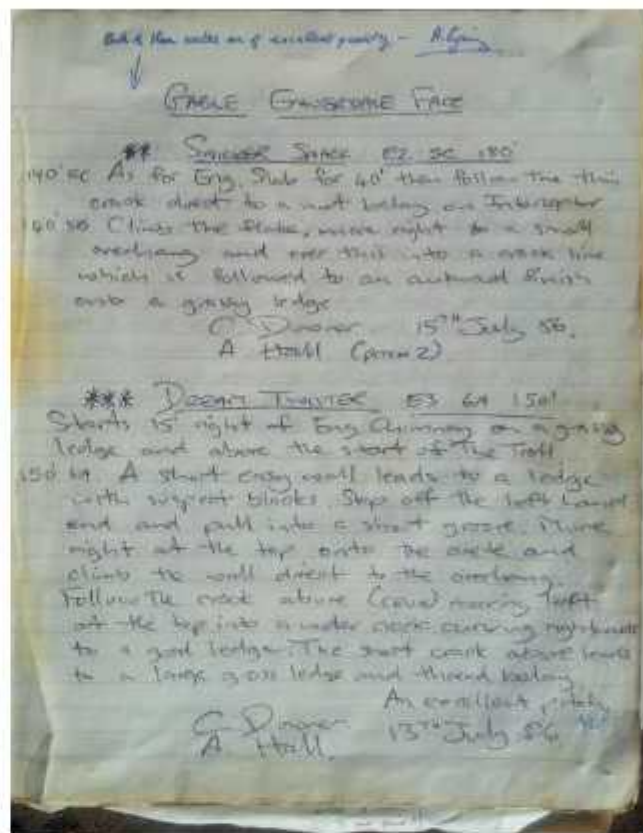 of excellent quality -
GABLE ENNERDALE FACE
** SNICKER SNACK E2 5C 180'
140' 5C As for Eng. Slab for 40' then follow the thin
crack direct to a nut belay on Interceptor
40' 5B Climb the flake, move right to a small
overhang and over this into a crack line
which is followed to an awkward finish
onto a grassy ledge
C Downer 15TH July 86.
A Hall (pitch 2)
*** DREAM TWISTER E3 6A 150'
Starts 15' right of Eng Chimney on a grassy
ledge and above the start of The Troll
150' 6A A short easy wall leads to a ledge
with suspect blocks. Step off the left hand
end and pull into a short groove. Move
right at the top onto the arete and
climb the wall direct to the overhang.
Follow The crack above (crux) moving left
at the top into a wider crack curving rightwards
to a good ledge. The short crack above leads
to a large grass ledge and thread belay
An excellent pitch
C Downer 13TH July 86
A Hall.